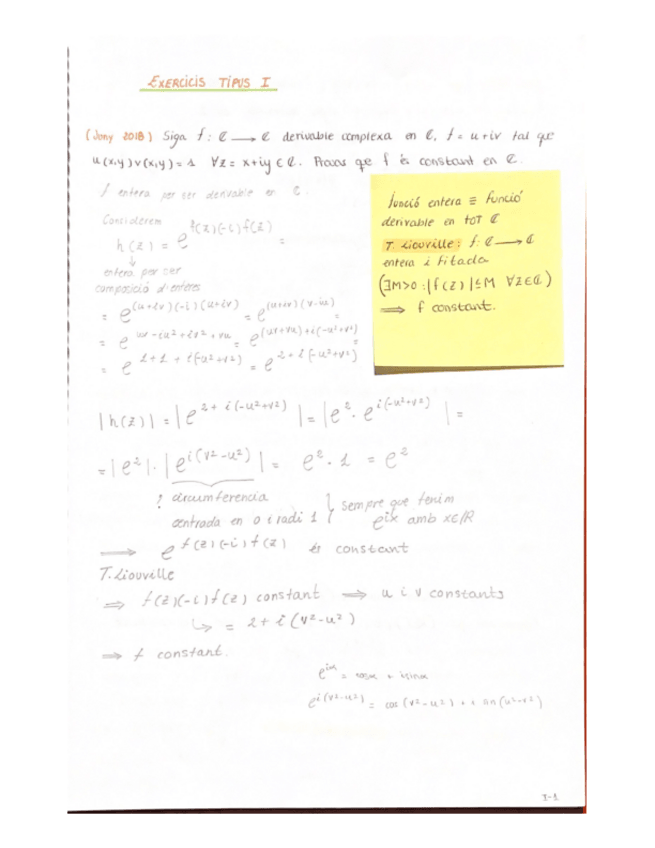 EXERCICIS TIPUS I
(Juny 2018) Siga f: ℂ ⟶ ℂ derivable complexa en ℂ, f = u+iv tal que
u(x,y)v(x,y)=1 ∀z = x+iy ∈ ℂ. Proveu que f és constant en ℂ.
f entera per ser derivable en ℂ.
Considerem
h(z) = e^{f(z)(-i)f(z)} =
↓
entera per ser
composició d'enteres
= e^{(u+iv)(-i)(u+iv)} = e^{(u+iv)(v-iu)} =
= e^{uv-iu²+iv²+vu} = e^{(uv+vu)+i(-u²+v²)} =
= e^{1+1+i(-u²+v²)} = e^{2+i(-u²+v²)}
funció entera ≡ funció
derivable en tot ℂ
T. Liouville: f: ℂ ⟶ ℂ
entera i fitada
(∃M>0 : |f(z)|≤M ∀z∈ℂ)
⟹ f constant.
|h(z)| = |e^{2+i(-u²+v²)}| = |e²·e^{i(-u²+v²)}| =
= |e²|·|e^{i(v²-u²)}| = e²·1 = e²
? circumferencia
centrada en 0 i radi 1 } sempre que tenim
e^{ix} amb x∈ℝ
⟹ e^{f(z)(-i)f(z)} és constant
T. Liouville
⟹ f(z)(-i)f(z) constant ⟹ u i v constants
↳ = 2+i(v²-u²)
⟹ f constant.
e^{ix} = cosx + isinx
e^{i(v²-u²)} = cos(v²-u²) + i sin(u²-v²)
I-1